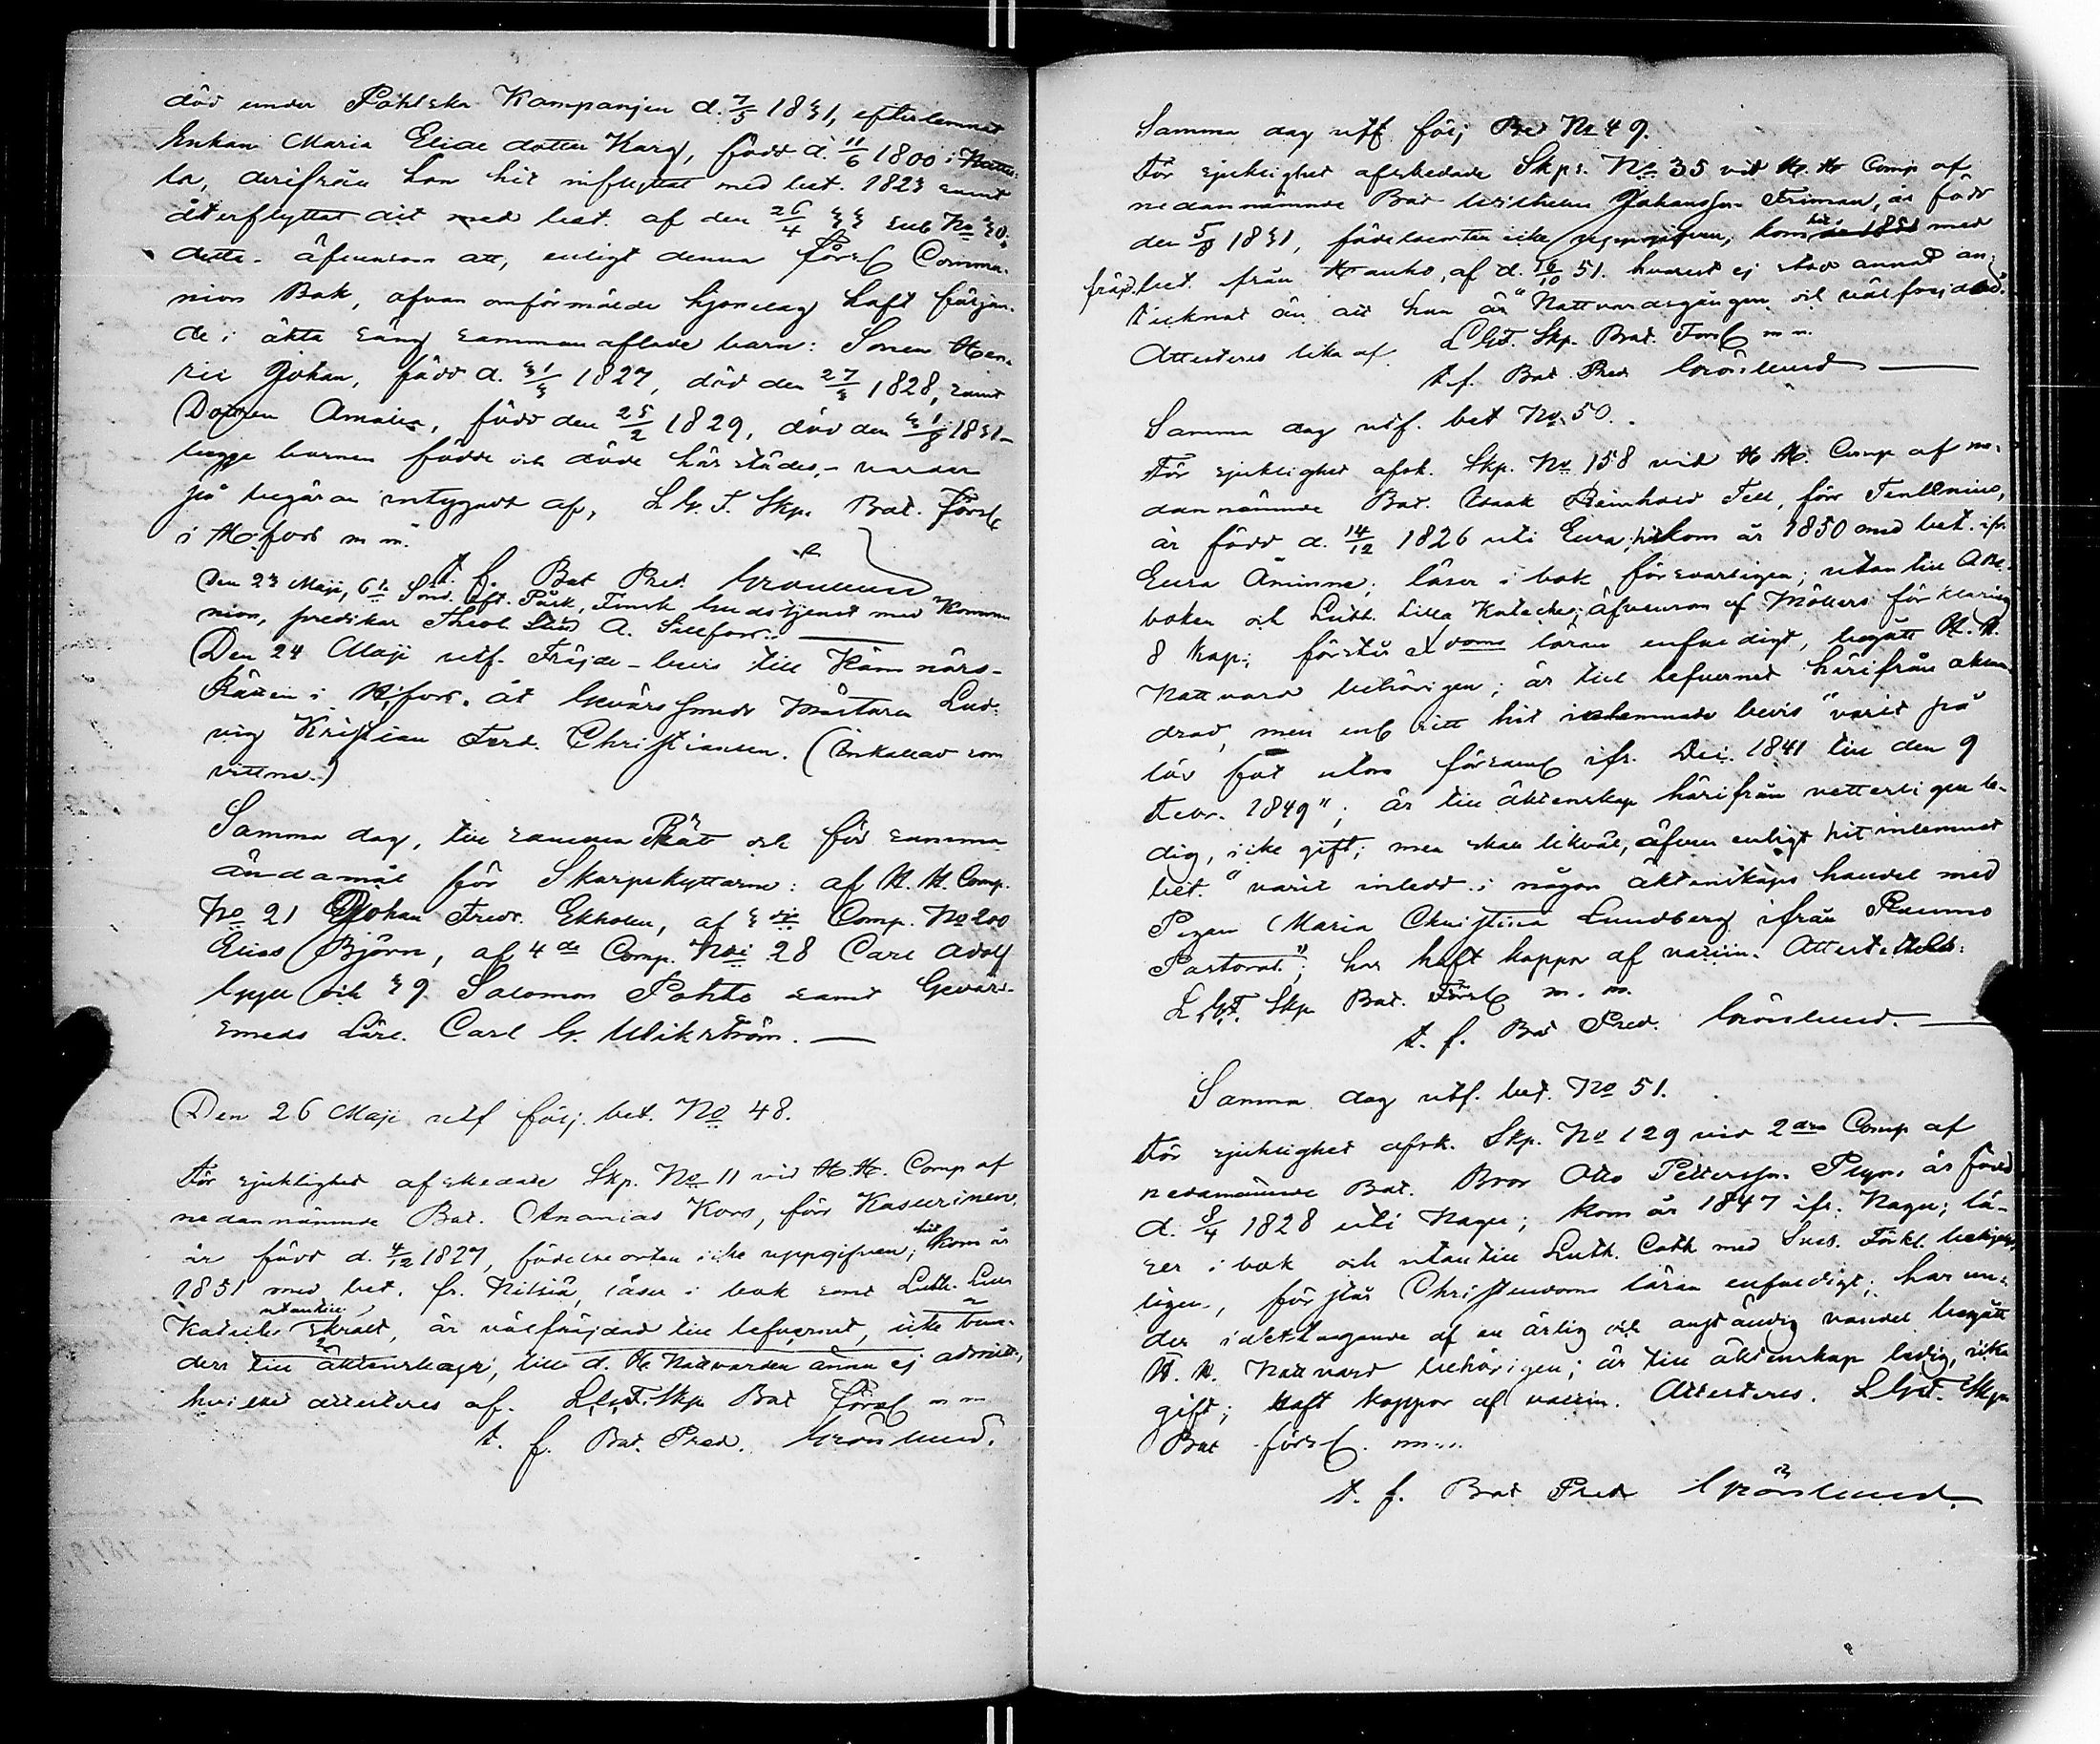 död under Pohlska Kampanjen d. 7/5 1831, efterlemnat
Enkan Maria Eliae dotter Karg, född d. 11/6 1800 i
la, derifrån hon hit inflyttat med bet. 1823 samt
återflyttat dit med best. af den 26/4 33 sub No 30;
detta. äfvensom att, enligt denna Förs Commu-
nion Bok, ofvan omförmälde hjonelag haft följan-
de i äkta säng sammanaflade barn: Sonen Hen-
ric Johan, född d. 31/3 1827, död den 27/3 1828, samt
Dottren Amalia, född den 25/2 1829, död den 31/8 1831-
begge barnen födde och döde härstädes, - varder
på begäran intygadt af, L. G. F. Skp. Bat. Förs
i H:fors m m.
t. f. Bat Pred. Grönlund
Den 23 Maji, 6te Sönd. eft. Påsk, Finsk Gudstjenst med Kommu
nion, predikar Theol. Stud A. Sillfors.
Den 24 Maji utf. Fräjde-bevis till Kämnärs-
Rätten i H:fors. åt Gevärssmeds Mästaren Lud-
vig Kristian Ferd. Christiansen. (Inkallad som
vittne.)
Samma dag, till samma Rätt och för samma
ändamål för Skarpskyttarne: af H. H. Comp.
No 21 Johan Fredr. Ekholm, af 3die Comp. No 200
Elias Björn, af 4de Comp. No: 28 Carl Adolf
och 39 Salomon Pohto samt Gevär-
smeds Lärl. Carl G. Wikström.
Den 26 Maji utf följ. bet. No 48.
För sjuklighet afskedade Skp. No 11 vid H. H. Comp af
nedannämnde Bat. Ananias Kors, förr Kasurinen,
är född d. 4/12 1827, födelseorten icke uppgifven; hit kom år
1851 med bet. fr. Nilsiä, läser i bok samt Luth. Lilla
Kateches utantill skralt, är välfräjdad till lefvernet, icke bun-
den till äktenskap, till d. H. Nattvarden ännu ej admitt,
hvilket attesteres af. L. G. F. Skp Bat förs m m
t. f. Bat. Pred. Grönlund.
Samma dag utf följ Bet No 49.
För sjuklighet afskedade Skp: No 35 vid H. H Comp af
nedannämnde Bat Wilhelm Johansson Friman, är född
den 5/8 1831, födelseorten icke uppgifven, kom hit 1851 med
fräjd. bet. från Hauho, af d. 16/10 51. hvarest ej stod annat an-
teknat än att han är "Nattvardsgången och välfräjdad."
Attesteres lika af. L G. F. Skp. Bat. Förs m m.
t. f. Bat Pred Grönlund
Samma dag utf. bet No 50.
För sjuklighet afsk. Skp. No 158 vid H H. Comp af ne-
dannämnde Bat. Isaak Reinhold Tell, förr Tentenius,
är född d. 14/12 1826 uti Eura; hitkom år 1850 med bet. ifr.
Eura Åminne; läser i bok försvarligen; utan till ABC-
boken och Luth. Lilla Kateches; äfvensom af Möllers förklaring
8 kap; förstår Xdoms läran enfaldigt, begått H. H.
Nattvard behörigen; är till lefvernet härifrån oklan-
drad, men enl ett hit inlemnadt bevis "varit på
lös fot utom församl ifr. Dec. 1841 till den 9
Febr. 1849"; är till äktenskap härifrån vetterligen le-
dig, icke gift; men skall likväl, äfven enligt hit inlemnat
bet. "varit inledd i någon äktenskaps handel med
Pigan Maria Christina Lundberg ifrån Raumo
Pastorat"; har haft koppor af vaccin. Attesteres:
L. G. F. Skp Bat. Förs m. m.
t. f. Bat Pred. Grönlund.
Samma dag utf. bet. No 51.
För sjuklighet afsk. Skp. No 129 vid 2dra Comp af
nedannämnde Bat. Bror Otto Pettersson Plym, är född
d. 8/4 1828 uti Nagu; kom år 1847 ifr. Nagu; lä-
ser i bok och utantill Luth. Cath med Sveb. Förkl. behjelp-
ligen, förstår Christendoms läran enfaldigt; har un-
der iakttagande af en ärlig och anständig vandel begått
H. H. Nattvard behörigen; är till äktenskap ledig, icke
gift; haft koppor af vaccin. Attesteres. L. G. F. Skp
Bat förs. m m
t. f. Bat Pred Grönlund.